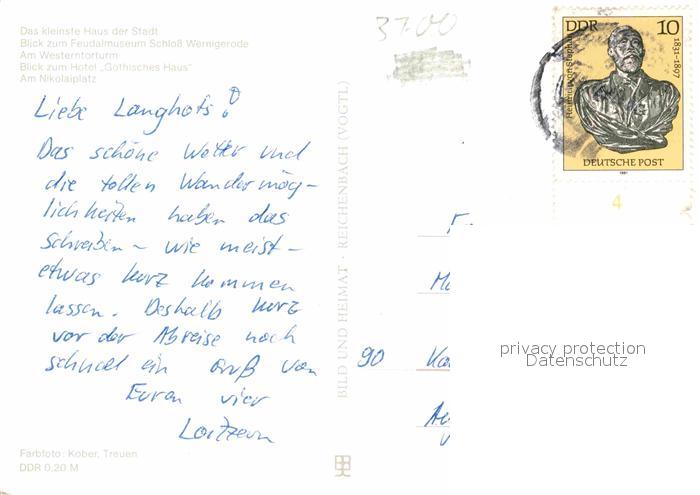 Das kleinste Haus der Stadt
Blick zum Feudalmuseum Schloß Wernigerode
Am Westerntorturm
Blick zum Hotel „Gothisches Haus“
Am Nikolaiplatz
Liebe Langhofs!
Das schöne Wetter und
die tollen Wandermög-
lichkeiten haben das
schreiben – wie meist –
etwas kurz kommen
lassen. Deshalb kurz
vor der Abreise noch
schnell ein Gruß von
Euren vier
Farbfoto: Kober, Treuen
DDR 0,20 M
BILD UND HEIMAT · REICHENBACH (VOGTL)
37.00
DDR 10
Heinrich von Stephan
1831-1897
DEUTSCHE POST
1981
4
90
privacy protection
Datenschutz